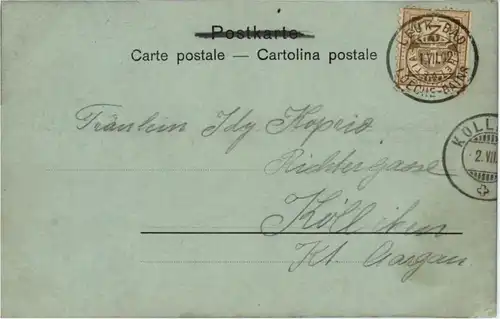 Postkarte
Carte postale — Cartolina postale
LEUK-BAD
1.VII.02
LOECHE-BAINS
KÖLL
2.VII.
Fräulein Idy Koprio
Richtergasse
Kölliken
Kt. Aargau.